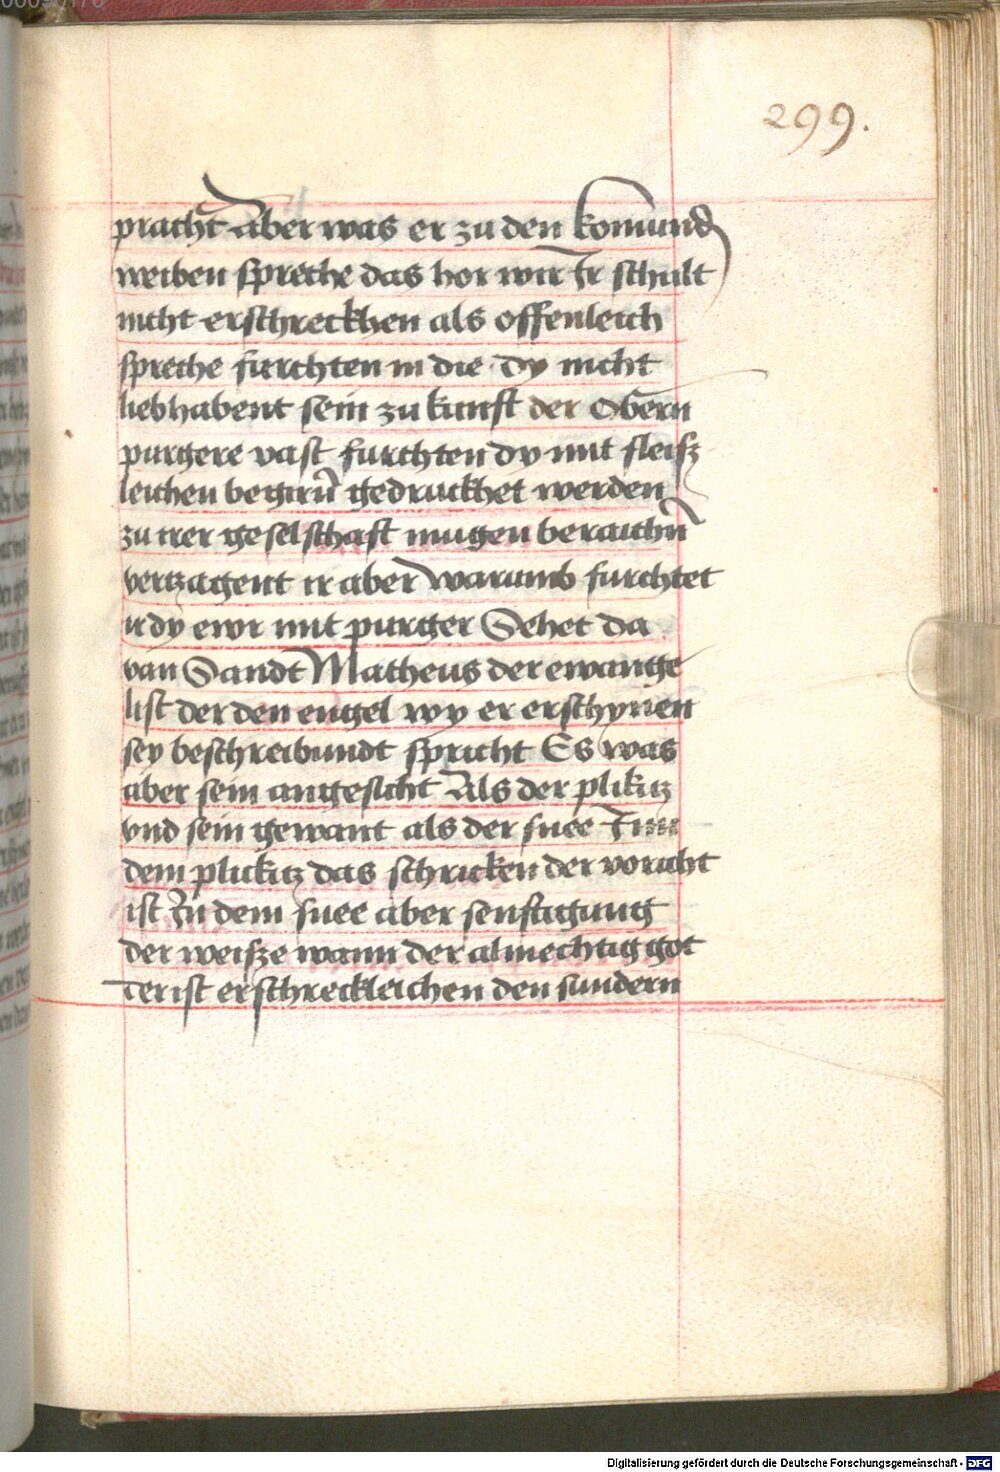 299.
pracht Aber was er zu den komund
weiben spreche das hor wir Ir schult
nicht erschreckhen als offenleich
spreche furchten in die dy nicht
liebhabent sein zu kunfft der Obern
purgere vast furchten dy mit fleisz
leichen begirn̄ gedruckhet werden
zu irer geselschafft mugen beraichn̄
vertzagent ir aber warumb furchtet
ir dy ewr mit purger Sehet da
van Sandt Matheus der ewange
list der den engel wy er erschynen
sey beschreibundt spricht Es was
aber sein angesicht Als der plikitz
vnd sein gewant als der snee Inn
dem plickitz das schricken der voricht
ist In dem snee aber senftigung
der weisze wann der almechtig got
der ist erschreckleichen den sundern
Digitalisierung gefördert durch die Deutsche Forschungsgemeinschaft - DFG